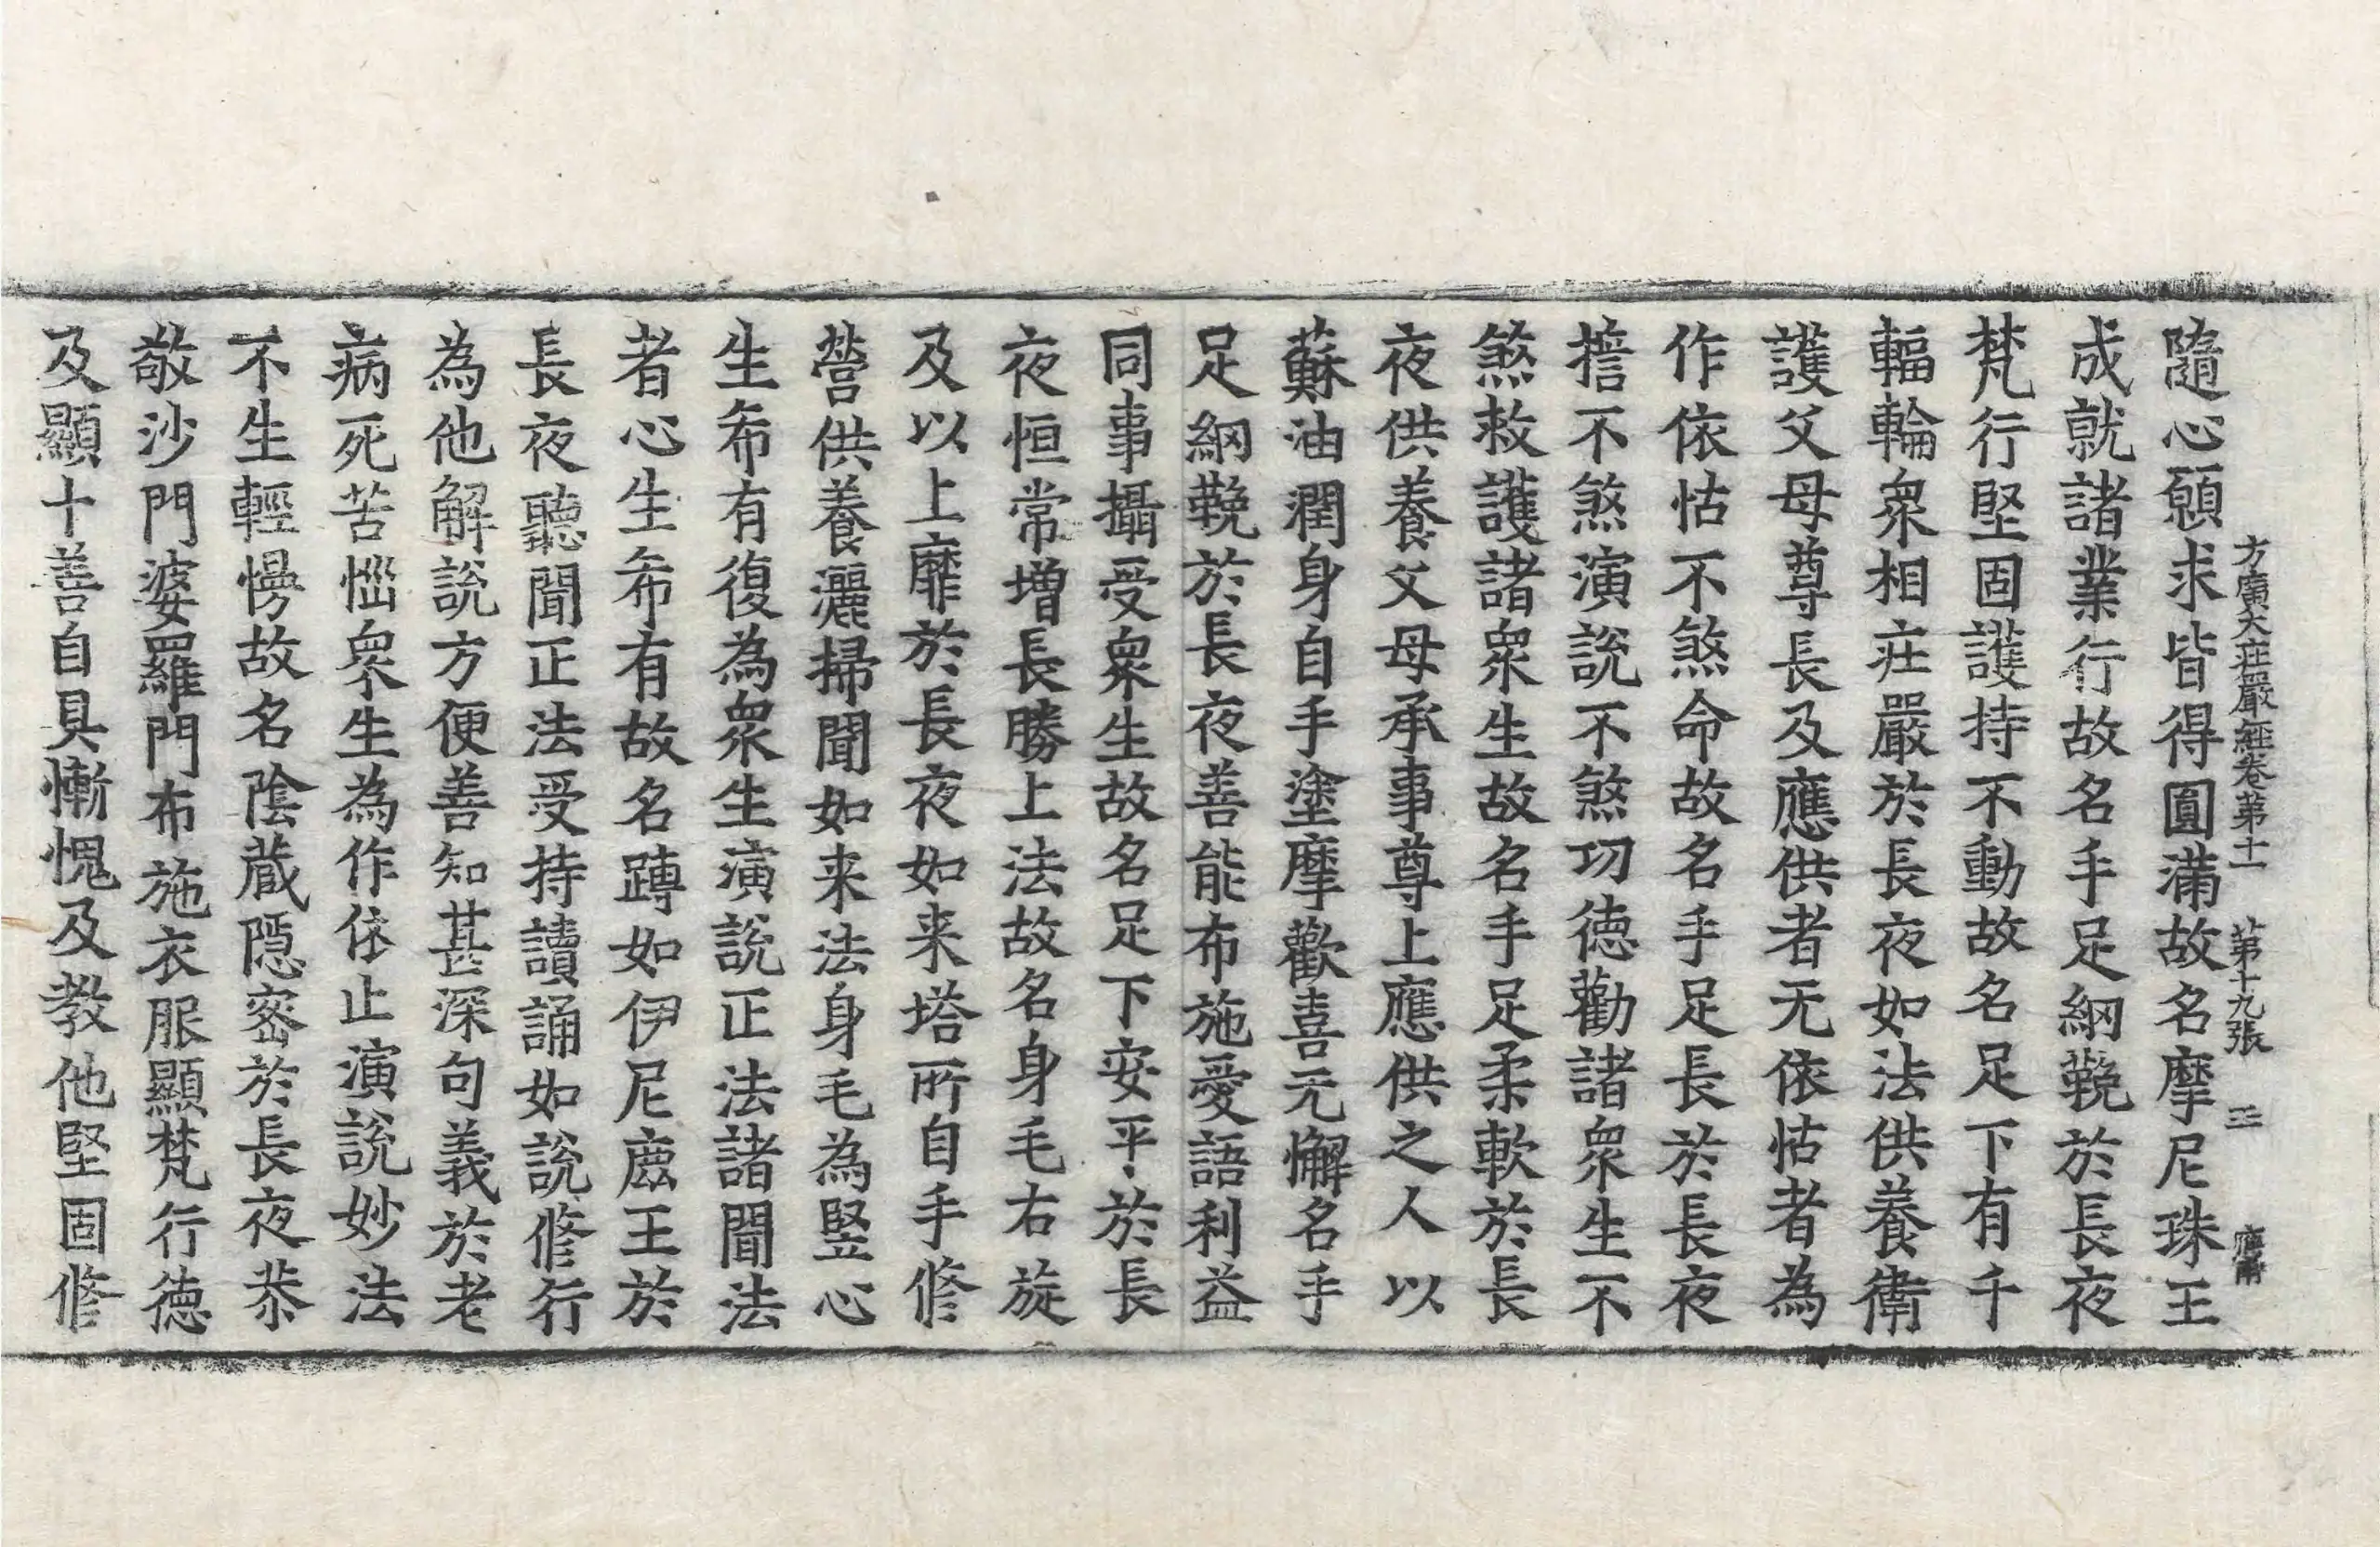 方廣大莊嚴經卷第十一 第十九張
隨心願求皆得圓滿故名摩尼珠王
成就諸業行故名手足網鞔於長夜
梵行堅固護持不動故名足下有千
輻輪衆相莊嚴於長夜如法供養衛
護父母尊長及應供者无依怙者為
作依怙不煞命故名手足長於長夜
擔不煞演說不煞功德勸諸衆生不
煞救護諸衆生故名手足柔軟於長
夜供養父母承事尊上應供之人以
蘇油潤身自手塗摩歡喜无懈名手
足網鞔於長夜善能布施愛語利益
同事攝受衆生故名足下安平於長
夜恒常增長勝上法故名身毛右旋
及以上靡於長夜如来塔所自手修
營供養灑掃聞如来法身毛為竪心
生希有復為衆生演說正法諸聞法
者心生希有故名蹲如伊尼鹿王於
長夜聽聞正法受持讀誦如說修行
為他解說方便善知甚深句義於老
病死苦惱衆生為作依止演說妙法
不生輕慢故名陰蔵隱密於長夜恭
敬沙門婆羅門布施衣服顯梵行德
及顯十善自具慚愧及教他堅固修